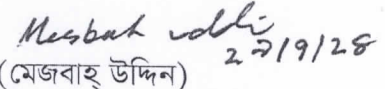 Mesbah uddin
২৯/9/২৪
(মেজবাহ্ উদ্দিন)